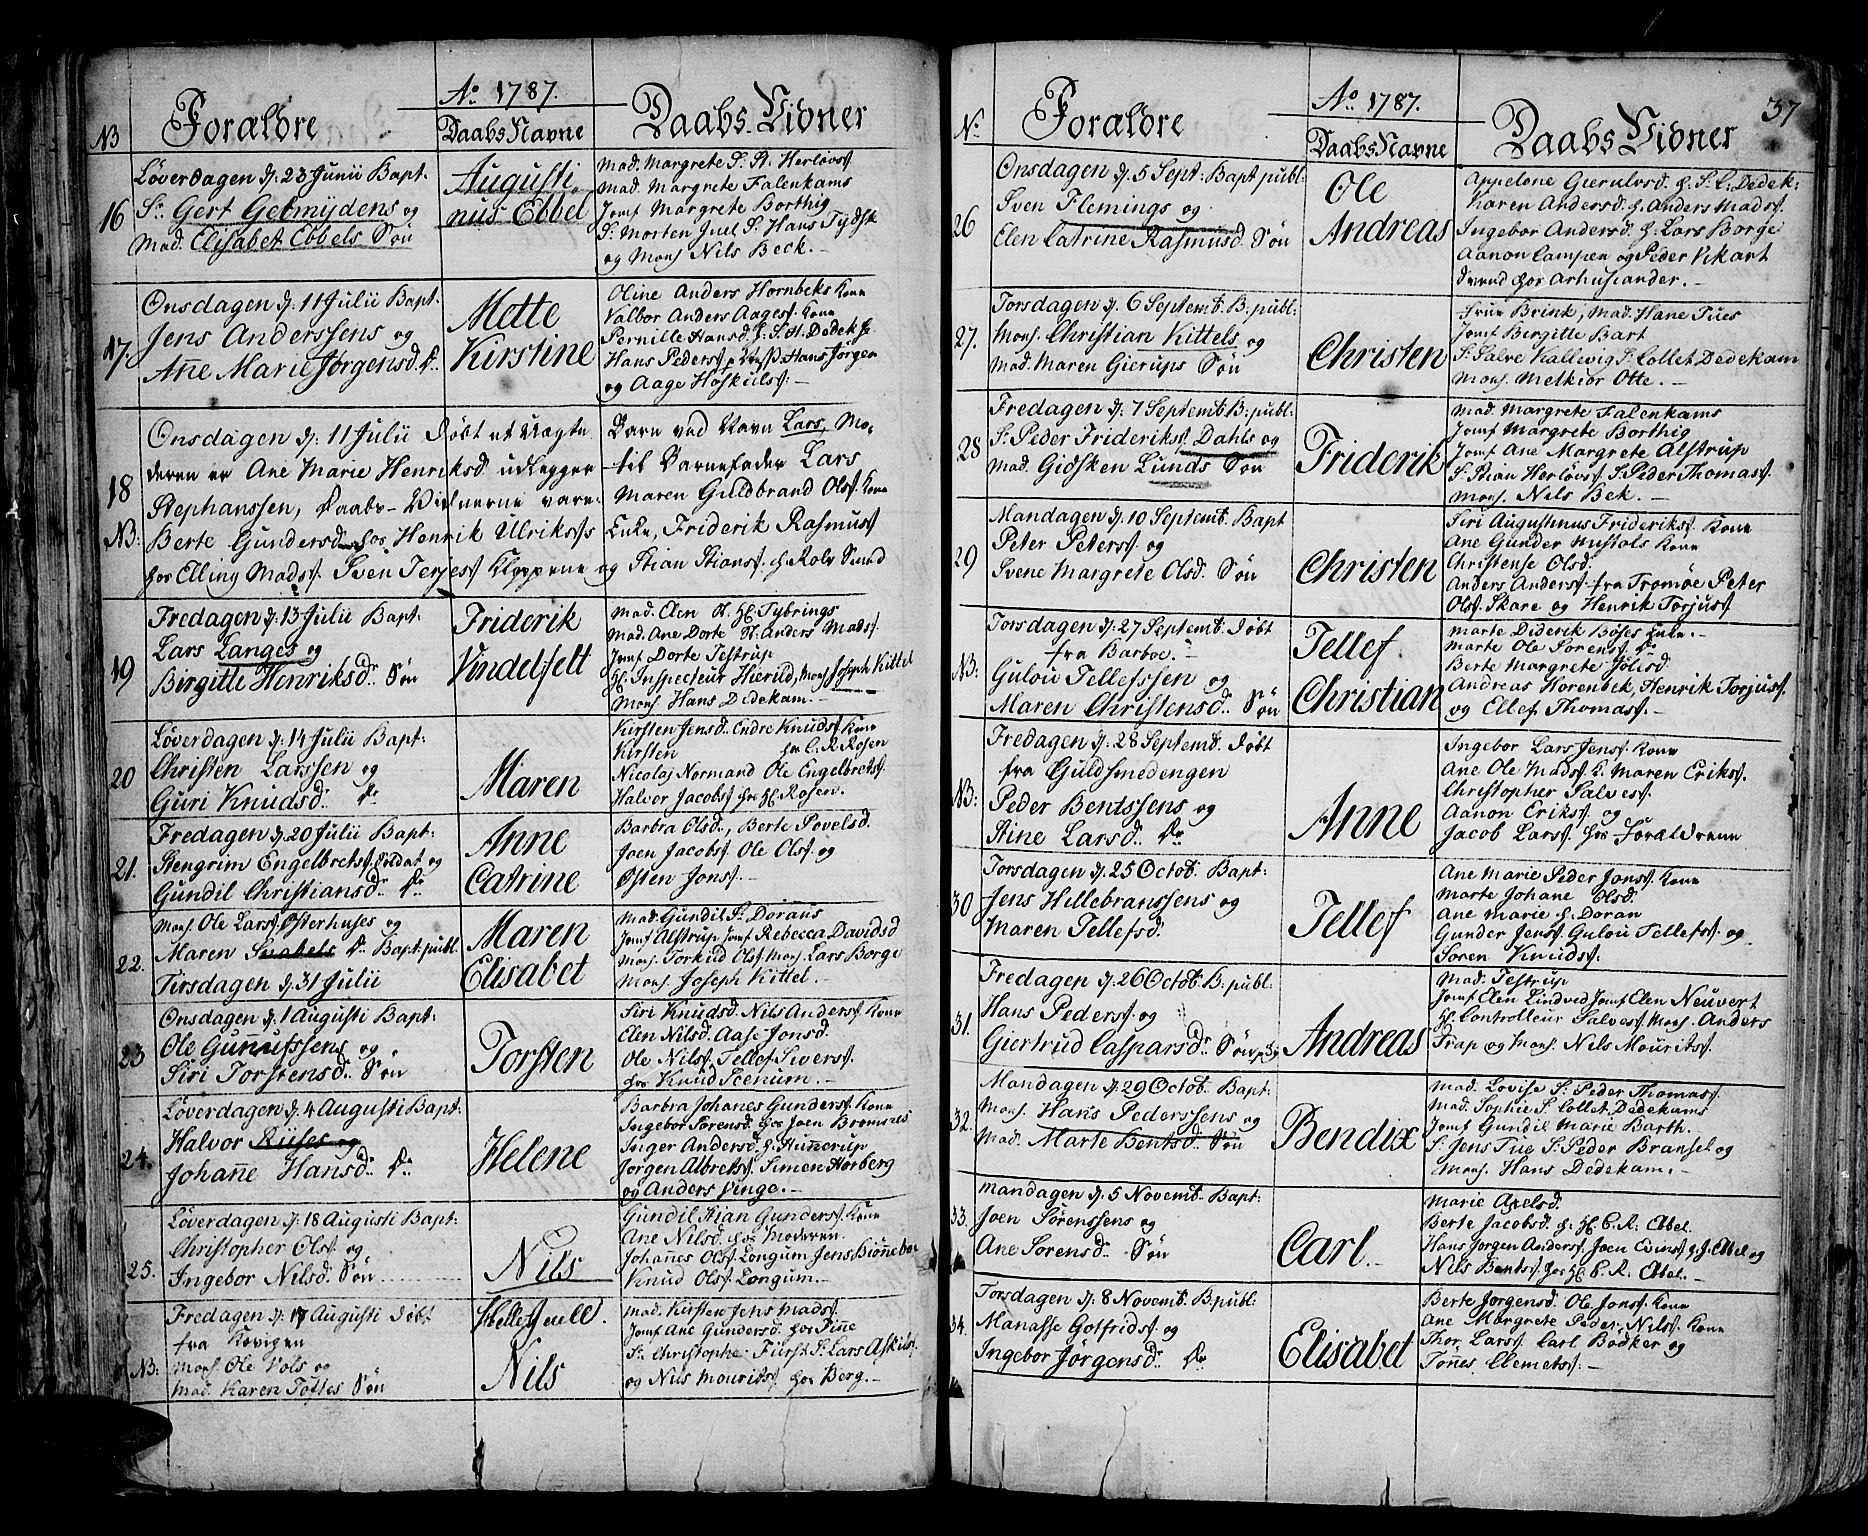 Ao. 1787.
No
Forældre
Daabs Navne
Daabs Vidner
16
Løverdagen d: 23 Junii Bapt.
Sr. Gert Gebmÿdens og
Mad. Elisabet Ebbels Søn
Augusti
nus Ebbel
Mad. Margrete S. St. Herløvs
Mad. Margrete Falenkams
Jomf Margrete Borthig
S. Morten Juel S. Hans Tydsk
og Mons Nils Beck.
17.
Onsdagen d: 11 Julii Bapt.
Jens Anderssens og
Añe Marie Jørgensd. Dr.
Mette
Kirstine
Oline Anders Hornbeks Kone
Valbor Anders Aages Kone
Pernille Hansd. h. S. H. Dedek
Hans Peders Hans Jørgen
og Aage Høskuls.
18
NB:
Onsdagen d: 11 Julii Døbt et Uægte Barn ved Navn Lars, Mo-
deren er Ane Marie Henriksd. udlegger til Barnefader Lars
Stephanssen, Daabs-Vidnerne vare: Maren Guldbrand Ols Kone
Berte Gundersd. hos Henrik Ulriks Enke, Friderik Rasmus
hos Elling Mads. Sven Terjes Kloppene og Stian Stians. h Rolv Sund
19
Fredagen d: 13 Julii Bapt:
Lars Langes og
Birgitte Henriksd. Søn
Friderik
Vindelfelt
Mad. Elen St. H. Tybrings
Mad. Ane Dorte St. Anders Mads
Jomf Dorte Testrup
H. Inspecteur Hierild, Mons Joseph Kittel
Mons Hans Dedekam.
20
Løverdagen d: 14 Julii Bapt:
Christen Larssen og
Guri Knudsd. Dr
Maren
Kirsten Jensd. Endre Knuds Kone
Kirsten hos C. R. Rosen
Nicolaj Normand Ole Engelbrets.
Halvor Jacobs hos H. Rosen.
21.
Fredagen d: 20 Julii Bapt:
Stengrim Engelbrets. Soldat og
Gundil Christiansd. Dr
Anne
Catrine
Barbra Olsd., Berte Povelsd.
Joen Jacobs Ole Ols og
Østen Jons.
22.
Mons. Ole Lars Østerhuses og
Maren Snabels Dr. Bapt: publ
Tirsdagen d: 31 Julii
Maren
Elisabet
Mad. Gundil S. Dorans
Jomf Alstrup Jomf Rebecca Davidsd
Mons. Torkild Ols Mons. Lars Borge
Mons. Joseph Kittel.
23
Onsdagen d: 1 Augusti Bapt:
Ole Gunufssens og
Siri Torstensd. Søn
Torsten
Siri Knudsd. Nils Anders Kone
Elen Nilsd. Aase Jonsd.
Ole Nils Tellef Sivers
hos Knud Scenum.
24.
Løverdagen d: 4 Augusti Bapt:
Halvor Riises og
Johañe Hansd. Dr
Helene
Barbra Johanes Gunders. Kone
Ingebor Sørensd. hos Joen Bromnes
Inger Andersd. h. Hunerup
Jørgen Albreks. Simen Horberg
og Anders Vinge.
25.
Løverdagen d: 18 Augusti Bapt:
Christopher Ols og
Ingebor Nilsd. Søn
Nils
Gundil Stian Gunders. Kone
Ane Nilsd. hos Moderen
Johannes Ols Longum Jens Biønebor
Knud Ols Longum.
NB:
Fredagen d: 17 Augusti Døbt
fra Revigen
Mons Ole Vols og
Mad. Karen Toftes Søn
Nils
Mad. Kirsten Jens Mads
Jomf Ane Gundersd. hos Fiñe
S. Christopher Fürst S. Lars Askils
og Nils Mourits hos Berg.
37
Ao. 1787.
No
Forældre
Daabs Navne
Daabs Vidner
26
Onsdagen d: 5 Sept: Bapt publ:
Sven Flemings og
Elen Catrine Rasmusd. Søn
Ole
Andreas
Appelone Gierulvsd h. S. L. Dedek:
Karen Andersd. h. Anders Mads.
Ingebor Andersd. h. Lars Borge
Aanon Campen og Peder Vikart
Dreng hos Arhusiander.
27.
Torsdagen d: 6 Septemb. B: publ:
Mons. Christian Kittels og
Mad. Maren Gierups Søn
Christen
Frue Brink, Mad. Hane Tues
Jomf Birgitte Bart
S. Salve Kallevig S. Lollet Dedekam
Mons. Melkior Otte.
28
Fredagen d: 7 Septemb. B: publ:
S. Peder Frideriks. Dahls og
Mad. Gidsken Lunds Søn
Friderik
Mad. Margrete Falenkams
Jomf Margrete Borthig
Jomf Ane Margrete Alstrup
S. Stian Herløvs. S. Peder Thomas
Mons. Nils Bek.
29
Mandagen d: 10 Septemb. Bapt
Peter Peters og
Svene Margrete Olsd. Søn
Christen
Siri Augustinus Frideriks. Kone
Ane Gunder Kustols Kone
Christense Olsd.
Anders Anders fra Tromøe Peter
Ols. Skare og Henrik Torjus
NB:
Torsdagen d: 27 Septemb. Døbt
fra Barboe.
Gulou Tellefssen og
Maren Christensd. Søn
Tellef
Christian
Marte Diderik Bøses Enke.
Marte Ole Sørens Dr
Berte Margrete Jølisd.
Andreas Horenbek, Henrik Torjus
og Ellef Thomas.
NB:
Fredagen d: 28 Septemb. Døbt
fra Guldsmedengen
Peder Bentssens og
Stine Larsd. Dr
Anne
Ingebor Lars Jens. Kone
Ane Ole Mads. K. Maren Eriks.
Christopher Salves.
Aanon Eriks. og
Jacob Lars. hos Forældrene
30
Torsdagen d: 25 Octob: Bapt:
Jens Hillebranssens og
Maren Tellefsd.
Tellef
Ane Marie Peder Jons Kone
Marte Johane Olsd.
Ane Marie h. Doran
Gunder Jens. Gulou Tellefs. og
Søren Knuds.
31.
Fredagen d. 26 Octob. B: publ:
Hans Peders og
Giertrud Caspersd. Søn
Andreas
Mad. Testrup
Jomf Elen Lindved Jomf Elen Neuvert
H. Controlleur Salves. Mons. Anders
Trap og Mons. Nils Mourits.
32.
Mandagen d: 29 Octob. Bapt:
Mons. Hans Pederssens og
Mad. Marte Bentsd. Søn
Bendix
Mad. Lovise S. Peder Thomas.
Mad. Sophie S. Lollet Dedekams
Jomf Gundil Marie Barth.
S. Jens Tue S. Peder Bransel og
Mons. Hans Dedekam.
33.
Mandagen d: 5 Novemb. Bapt:
Joen Sørenssens og
Ane Sørensd. Søn
Carl.
Marie Axelsd.
Berte Jacobsd. h. H. C. R. Ebbel.
Hans Jørgen Anders. Joen Evens. h. J. Ebbel og
Nils Bents. hos H. C. R. Ebbel.
34.
Torsdagen d: 8 Novemb. B: publ:
Manasse Gotfrids. og
Ingebor Jørgensd. Dr
Elisabet
Berte Jørgensd. Ole Jons. Kone
Ane Margrete Peder Nils. Kone
Thor Lars. Carl Bødker og
Tønes Clemets.